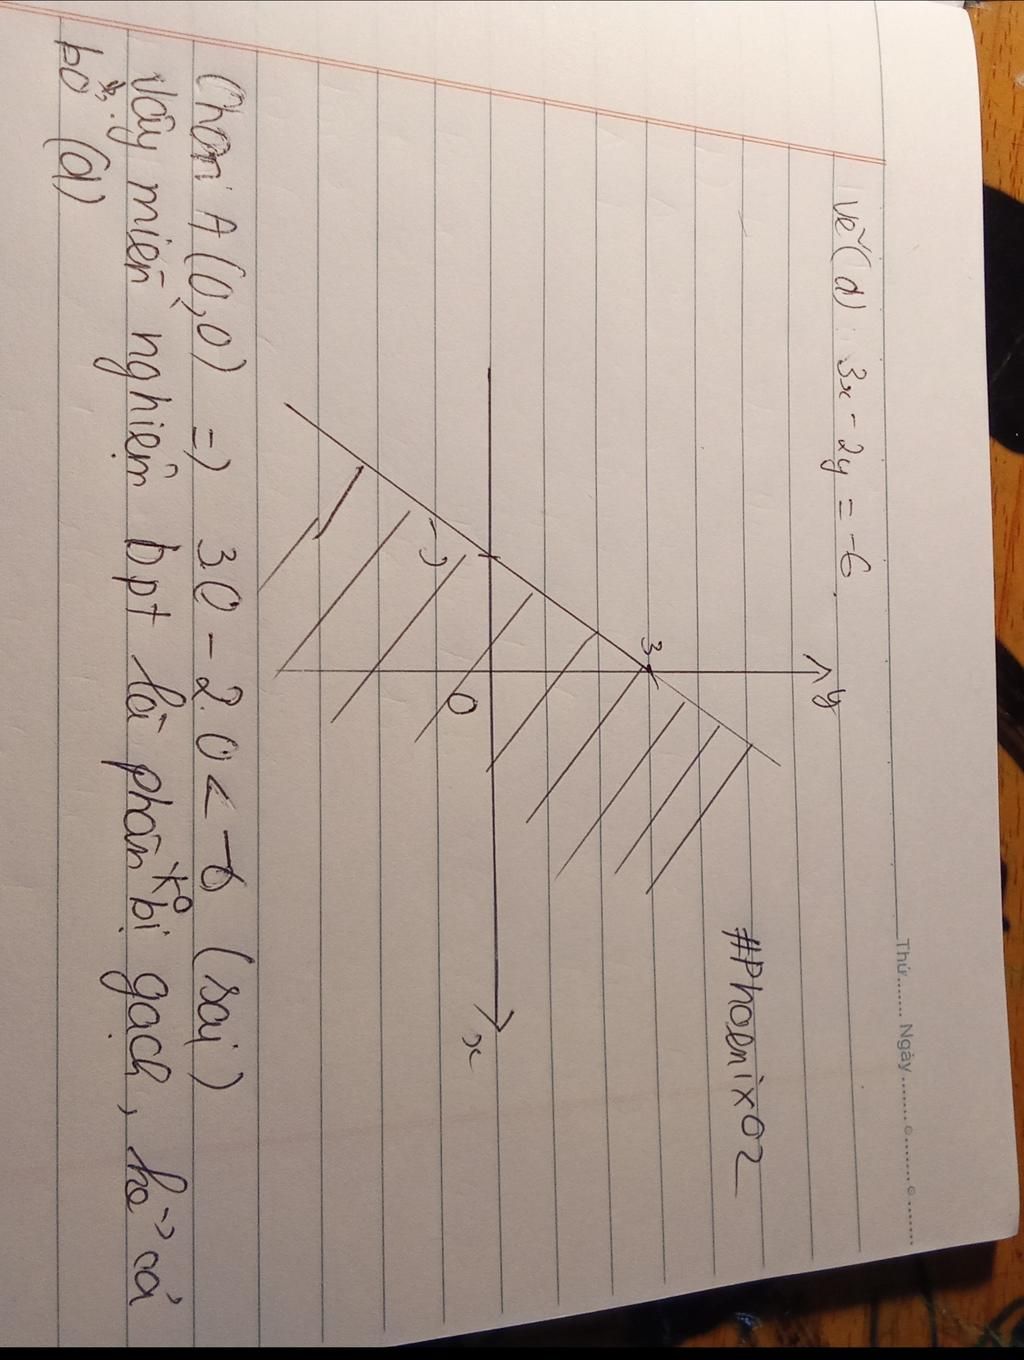 Thứ....... Ngày.......
Vẽ (d) : 3x - 2y = -6
#Phoenix02
y
3
-2
O
x
Chọn A(0,0) => 3.0 - 2.0 < -6 (sai)
Vậy miền nghiệm bpt là phần ko bị gạch, kể cả
bờ (d)